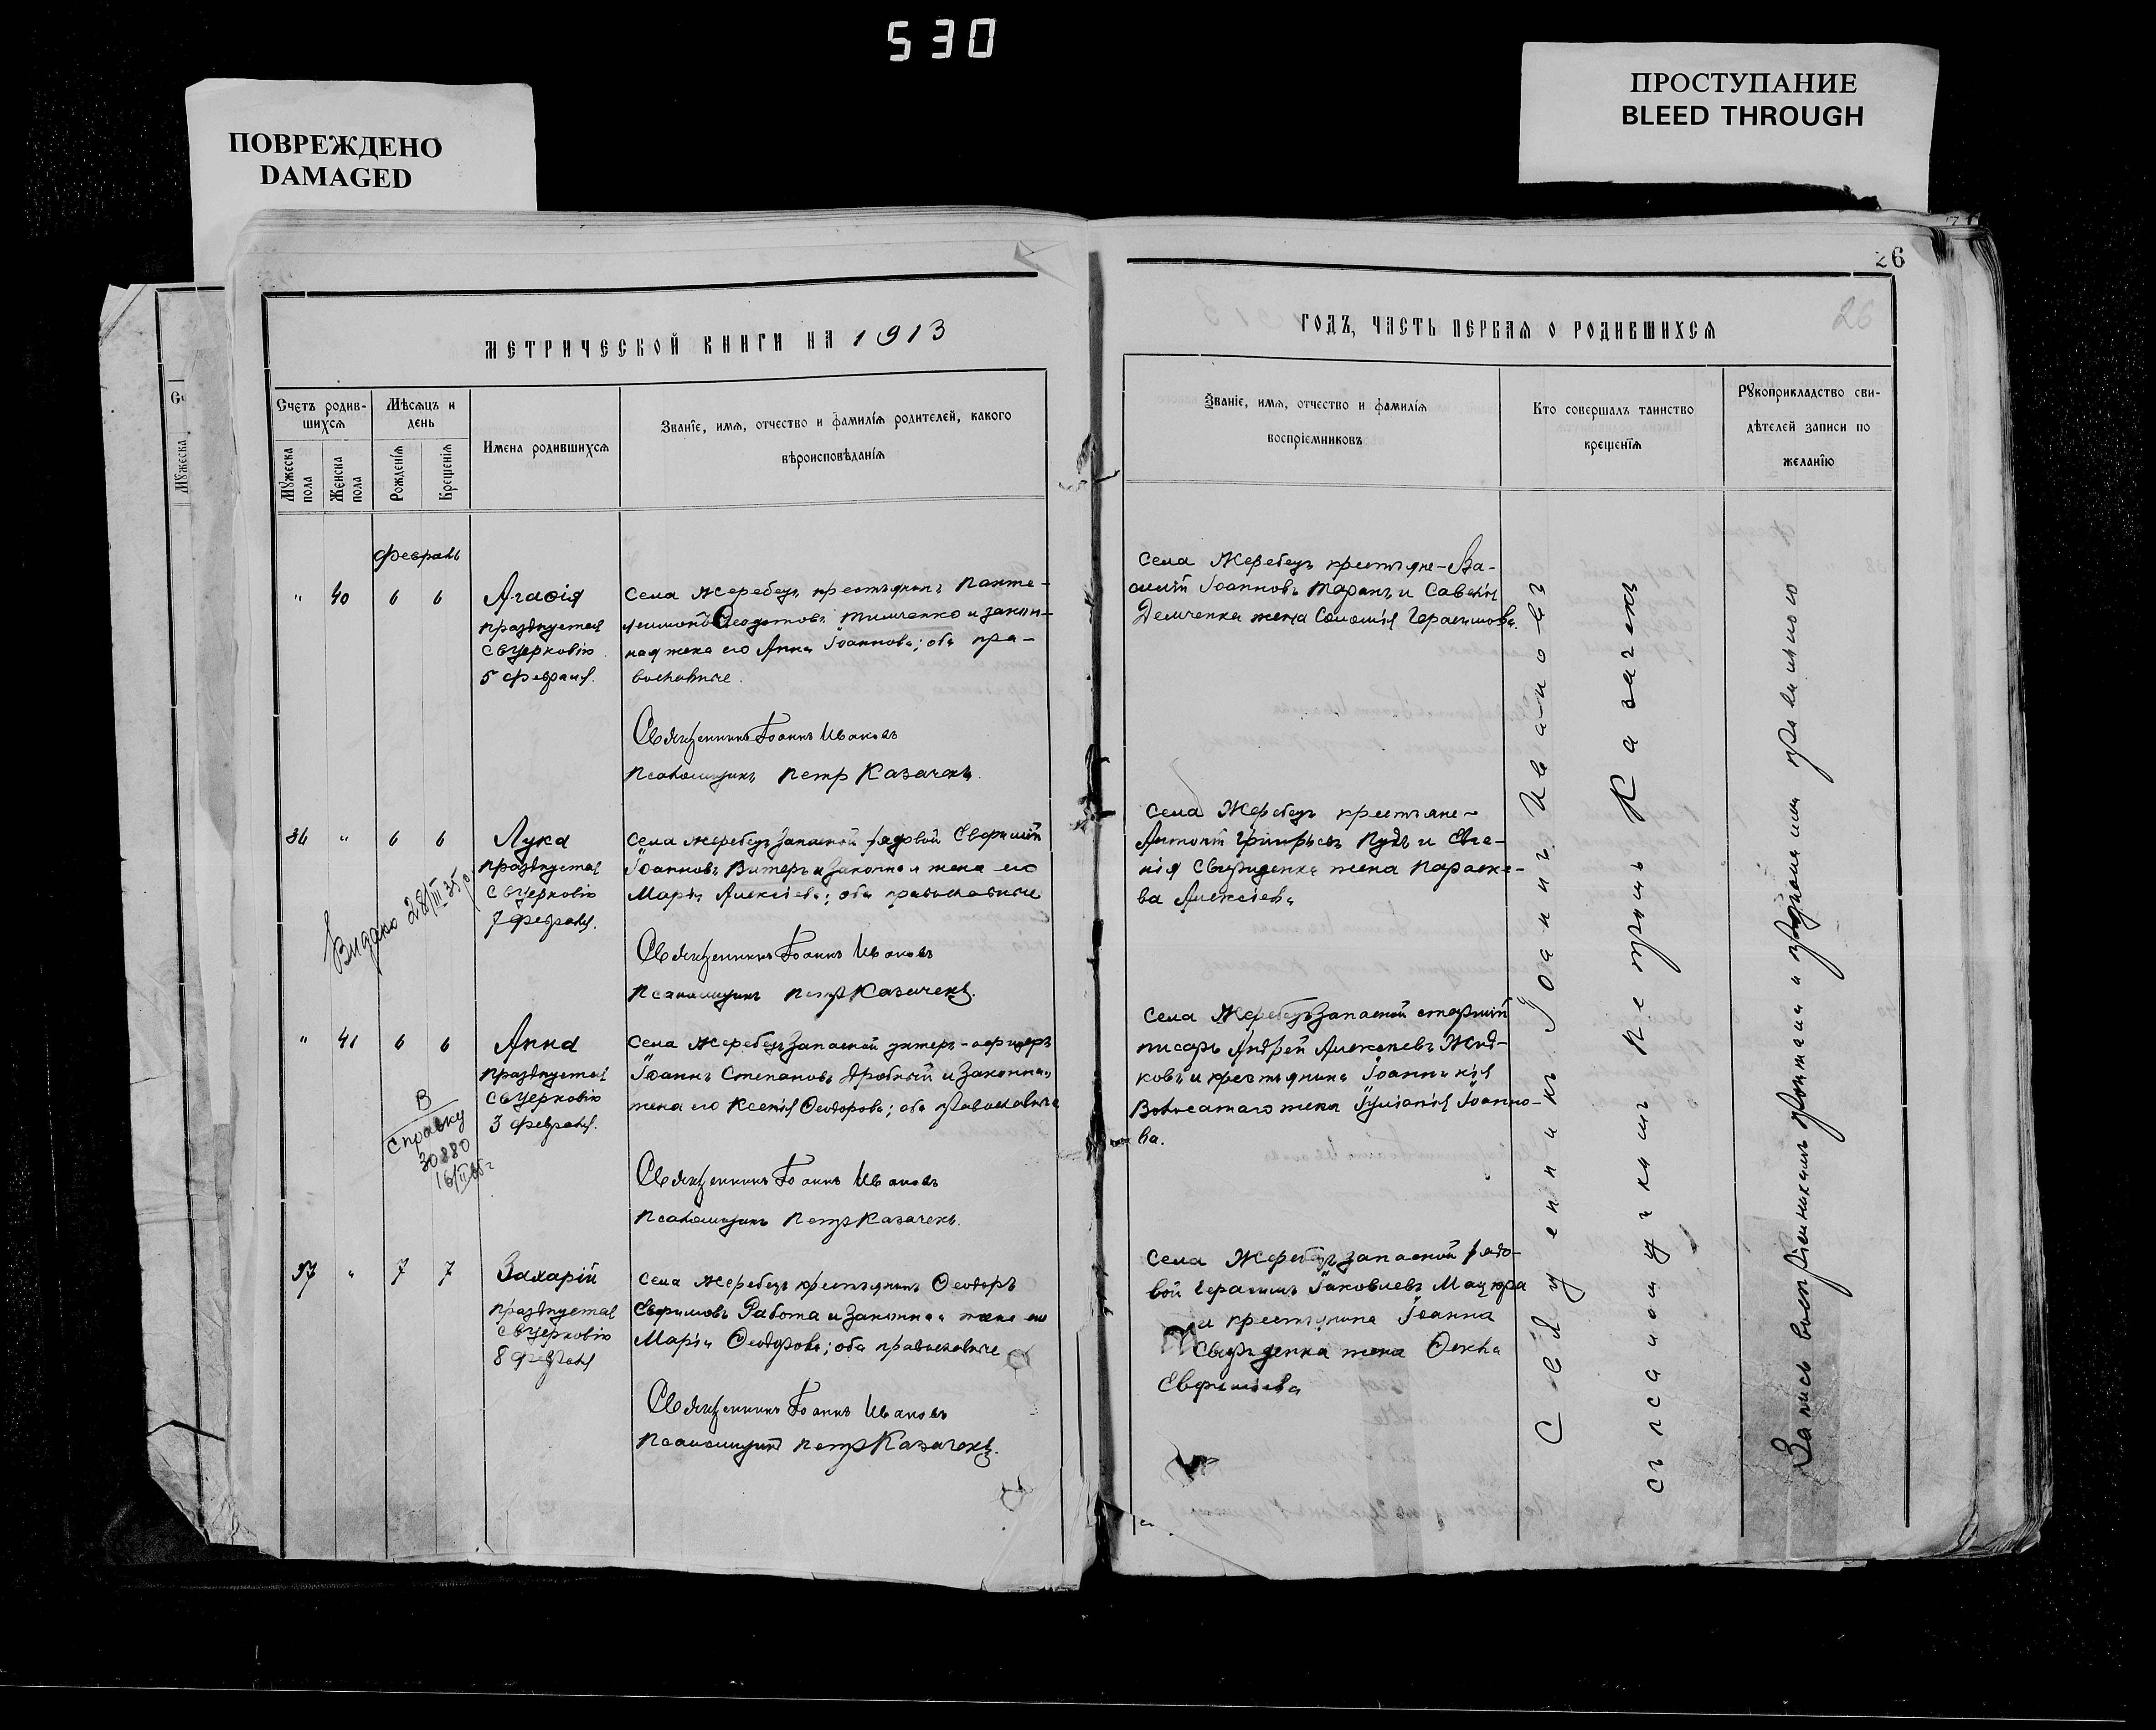 530
ПОВРЕЖДЕНО
DAMAGED
ПРОСТУПАНИЕ
BLEED THROUGH
26
26
МЕТРИЧЕСКОЙ КНИГИ НА 1913
ГОДЪ, ЧАСТЬ ПЕРВАЯ О РОДИВШИХСЯ
Счетъ родив-
шихся
Мужеска пола
Женска пола
Мѣсяцъ и
день
Рожденія
Крещенія
Имена родившихся
Званіе, имя, отчество и фамилія родителей, какого
вѣроисповѣданія
Званіе, имя, отчество и фамилія
воспріемниковъ
Кто совершалъ таинство
крещенія
Рукоприкладство сви-
дѣтелей записи по
желанію
Мужеска
Февраль
" 40 6 6
Агаѳія
празднуемая
Св. Церковію
5 февраля.
Села Жеребецъ крестьянинъ Панте-
леимонъ Ѳеодотовъ Тимченко и закон-
ная жена его Анна Іоаннова; оба пра-
вославные.
Священникъ Іоаннъ Ивановъ
Псаломщикъ Петръ Казачекъ.
Села Жеребецъ крестьяне - Ва-
силій Іоанновъ Таранъ и Савелія
Демченка жена Соломія Герасимова.
36 " 6 6
Лука
празднуемый
Св. Церковію
7 февраля.
Видано 28/III 35 р
Села Жеребецъ запасной рядовой Евфимій
Іоанновъ Витеръ и законная жена его
Марія Алексіева; оба православные
Священникъ Іоаннъ Ивановъ
Псаломщикъ Петръ Казачекъ.
Села Жеребецъ крестьяне -
Антоній Григорьевъ Пудъ и Евге-
нія Свириденка жена Параске-
ва Алексіева
" 41 6 6
Анна
празднуемая
Св. Церковію
3 февраля.
В
справку
30880
16/II
Села Жеребецъ запасной унтеръ-офицеръ
Іоаннъ Степановъ Дробный и законная
жена его Ксенія Ѳеодорова; оба православные
Священникъ Іоаннъ Ивановъ
Псаломщикъ Петръ Казачекъ.
Села Жеребецъ запасной старшій
писарь Андрей Алексіевъ Жид-
ковъ и крестьянина Іоанникія
жена Іуліанія Іоанно-
ва.
37 " 7 7
Захарій
празднуемый
Св. Церковію
8 февраля
Села Жеребецъ крестьянинъ Ѳеодоръ
Евфимовъ Работа и законная жена его
Марія Ѳеодорова; оба православные
Священникъ Іоаннъ Ивановъ
Псаломщикъ Петръ Казачекъ.
Села Жеребецъ запасной рядо-
вой Герасимъ Іаковлевъ Мацюра
и крестьянина Іоанна
Свириденка жена Ѳекла
Евфиміева
Священникъ Іоаннъ Ивановъ
съ псаломщикомъ Петромъ Казачекъ
Запись воспріемниками прочитана и признана правильною